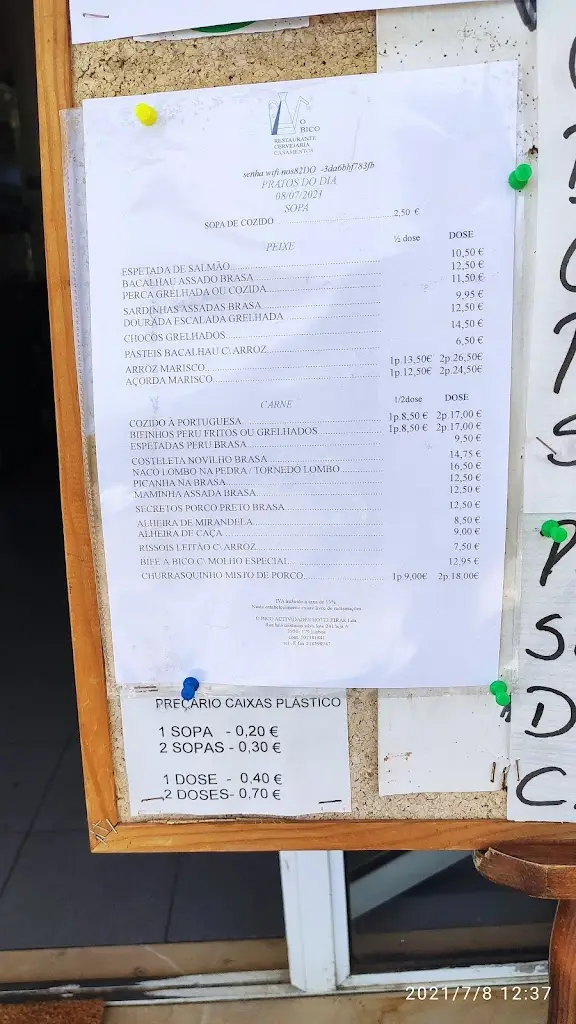 O
BICO
RESTAURANTE
CERVEJARIA
CASAMENTOS
senha wifi nos82DO -3da6bbf783fb
PRATOS DO DIA
08/07/2021
SOPA
SOPA DE COZIDO 2,50 €
PEIXE ½ dose DOSE
ESPETADA DE SALMÃO 10,50 €
BACALHAU ASSADO BRASA 12,50 €
PERCA GRELHADA OU COZIDA 11,50 €
SARDINHAS ASSADAS BRASA 9,95 €
DOURADA ESCALADA GRELHADA 12,50 €
CHOCOS GRELHADOS 14,50 €
PASTEIS BACALHAU C\ ARROZ 6,50 €
ARROZ MARISCO 1p.13,50€ 2p.26,50€
AÇORDA MARISCO 1p.12,50€ 2p.24,50€
CARNE 1/2dose DOSE
COZIDO À PORTUGUESA 1p.8,50 € 2p.17,00 €
BIFINHOS PERU FRITOS OU GRELHADOS 1p.8,50 € 2p.17,00 €
ESPETADAS PERU BRASA 9,50 €
COSTELETA NOVILHO BRASA 14,75 €
NACO LOMBO NA PEDRA / TORNEDÓ LOMBO 16,50 €
PICANHA NA BRASA 12,50 €
MAMINHA ASSADA BRASA 12,50 €
SECRETOS PORCO PRETO BRASA 12,50 €
ALHEIRA DE MIRANDELA 8,50 €
ALHEIRA DE CAÇA 9,00 €
RISSOIS LEITÃO C\ ARROZ 7,50 €
BIFE A BICO C\ MOLHO ESPECIAL 12,95 €
CHURRASQUINHO MISTO DE PORCO 1p.9,00€ 2p.18,00€
IVA incluído à taxa de 13%
O BICO ACTIVIDADES HOTELEIRAS, Lda.
PREÇARIO CAIXAS PLÁSTICO
1 SOPA - 0,20 €
2 SOPAS - 0,30 €
1 DOSE - 0,40 €
2 DOSES- 0,70 €
2021/7/8 12:37